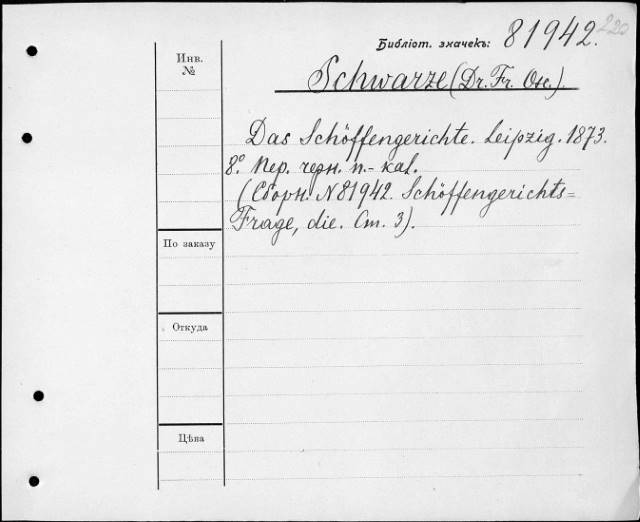 Библіот. значекъ: 81942.
220
Инв.
№
Schwarze (Dr. Fr. Osc.).
Das Schöffengerichte. Leipzig. 1873.
8º. Пер. черн. п.-кал.
(Сборн. N 81942. Schöffengerichts=
Frage, die. Ст. 3).
По заказу
Откуда
Цѣна